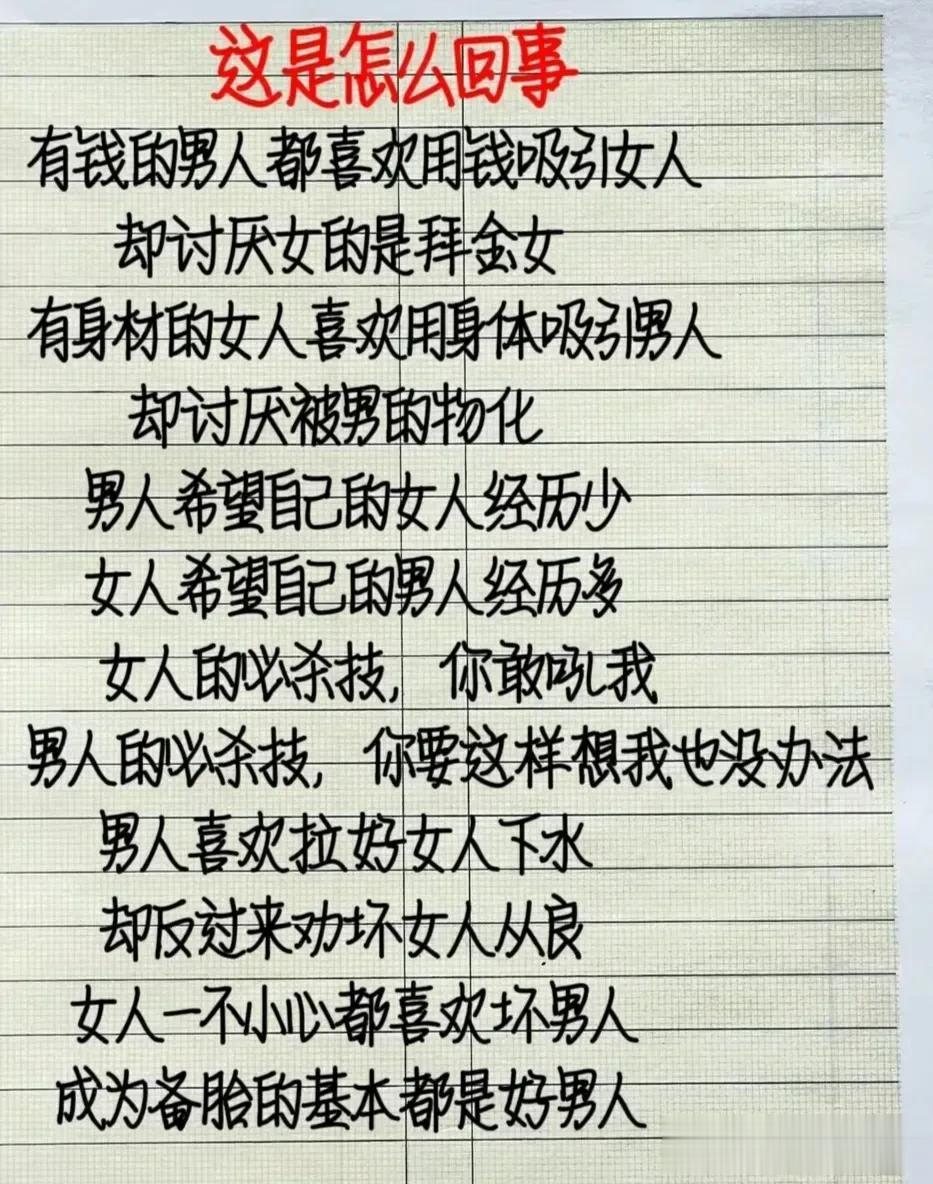 这是怎么回事
有钱的男人都喜欢用钱吸引女人
却讨厌女的是拜金女
有身材的女人喜欢用身体吸引男人
却讨厌被男的物化
男人希望自己的女人经历少
女人希望自己的男人经历多
女人的必杀技,你敢吼我
男人的必杀技,你要这样想我也没办法
男人喜欢拉好女人下水
却反过来劝坏女人从良
女人一不小心都喜欢坏男人
成为备胎的基本都是好男人